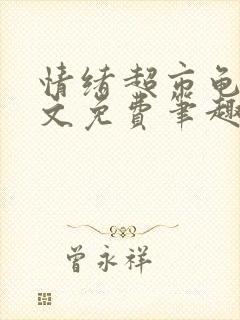 情绪超市龟
文免费笔趣
曾永祥